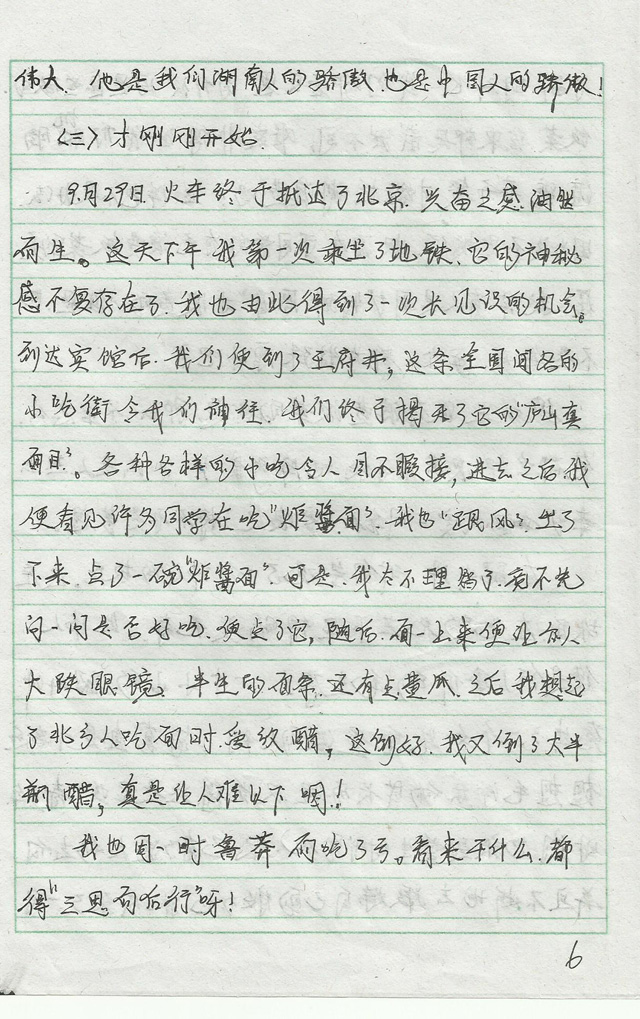 伟大，他是我们湖南人的骄傲，也是中国人的骄傲！
〈三〉才刚刚开始.
9月29日，火车终于抵达了北京，兴奋之感油然
而生。这天下午我第一次乘坐了地铁，它的神秘
感不复存在了，我也由此得到了一次长见识的机会。
到达宾馆后，我们便到了王府井，这条全国闻名的
小吃街令我们神往，我们终于揭开了它的"庐山真
面目"。各种各样的小吃令人目不暇接，进去之后，我
便看见许多同学在吃"炸醬面"，我也"跟风"，坐了
下来，点了一碗"炸醬面"，可是，我太不理智了，竟不先
问一问是否好吃，便点了它，随后，面一上来便让众人
大跌眼镜，半生的面条，还有点黄瓜，之后我想起
了北方人吃面时爱放醋，这倒好，我又倒了大半
瓶醋，真是让人难以下咽！
我也因一时鲁莽而吃了亏。看来干什么，都
得"三思而后行"呀！
6